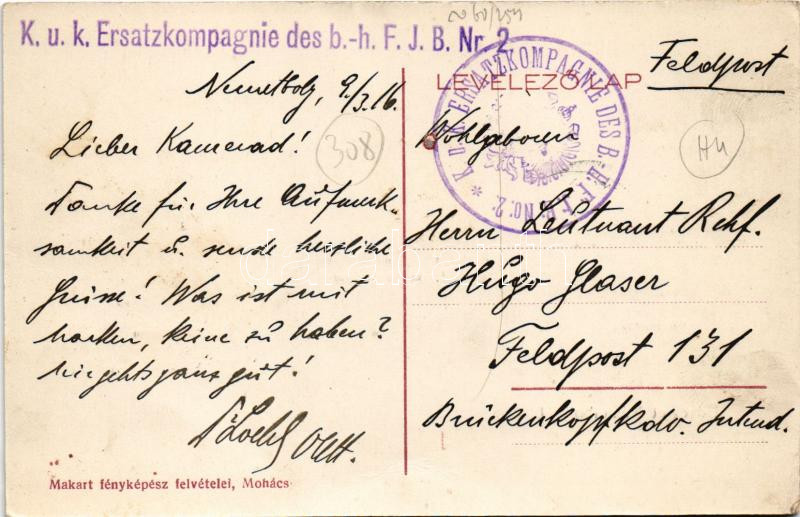 K. u. k. Ersatzkompagnie des b.-h. F. J. B. Nr. 2
LEVELEZŐ-LAP
K. U. K. ERSATZKOMPAGNIE DES B.-H. F. J. B. No. 2. *
Feldpost
Nemetboly, 9/3.16.
Lieber Kamerad!
308
Danke für Ihre Aufmerk-
samkeit u. sende herzliche
Grüsse! Was ist mit
Marken, keine zu haben?
hier gehts ganz gut!
Oblt.
Wohlgeboren
Hu
Herrn Leutnant Rchf.
Hugo Glaser
Feldpost 131
Brückenkopfkdo. Intend.
Makart fényképész felvételei, Mohács
darabanth